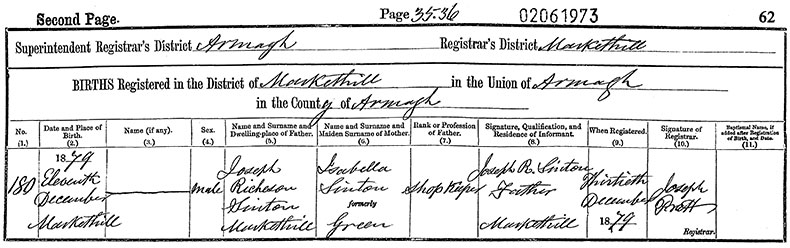 Second Page. Page 35-36 02061973 62
Superintendent Registrar's District Armagh Registrar's District Markethill
BIRTHS Registered in the District of Markethill in the Union of Armagh
in the County of Armagh
No. Date and Place of Birth. Name (if any). Sex. Name and Surname and Dwelling-place of Father. Name and Surname and Maiden Surname of Mother. Rank or Profession of Father. Signature, Qualification, and Residence of Informant. When Registered. Signature of Registrar. Baptismal Name, if added after Registration of Birth, and Date.
(1.) (2.) (3.) (4.) (5.) (6.) (7.) (8.) (9.) (10.) (11.)
1879
Eleventh
December
Markethill
180
male
Joseph
Richeson
Sinton
Markethill
Isabella
Sinton
formerly
Green
Shopkeeper
Joseph R. Sinton
Father
Markethill
Thirtieth
December
1879
Joseph
Registrar.